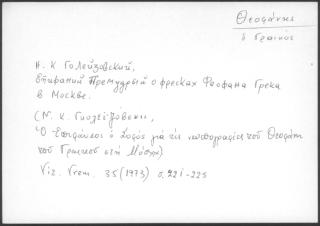 Θεοφάνης
ὁ Γραικός
Н. К Голейзовский,
Епифаний Премудрый о фресках Феофана Грека
в Москве.
(Ν. Κ. Γκολεϊζόβσκι,
Ὁ Ἐπιφάνιος ὁ Σοφός γιά τίς τοιχογραφίες τοῦ Θεοφάνη
τοῦ Γραικοῦ στή Μόσχα)
Viz. Vrem. 35 (1973) σ. 221-225